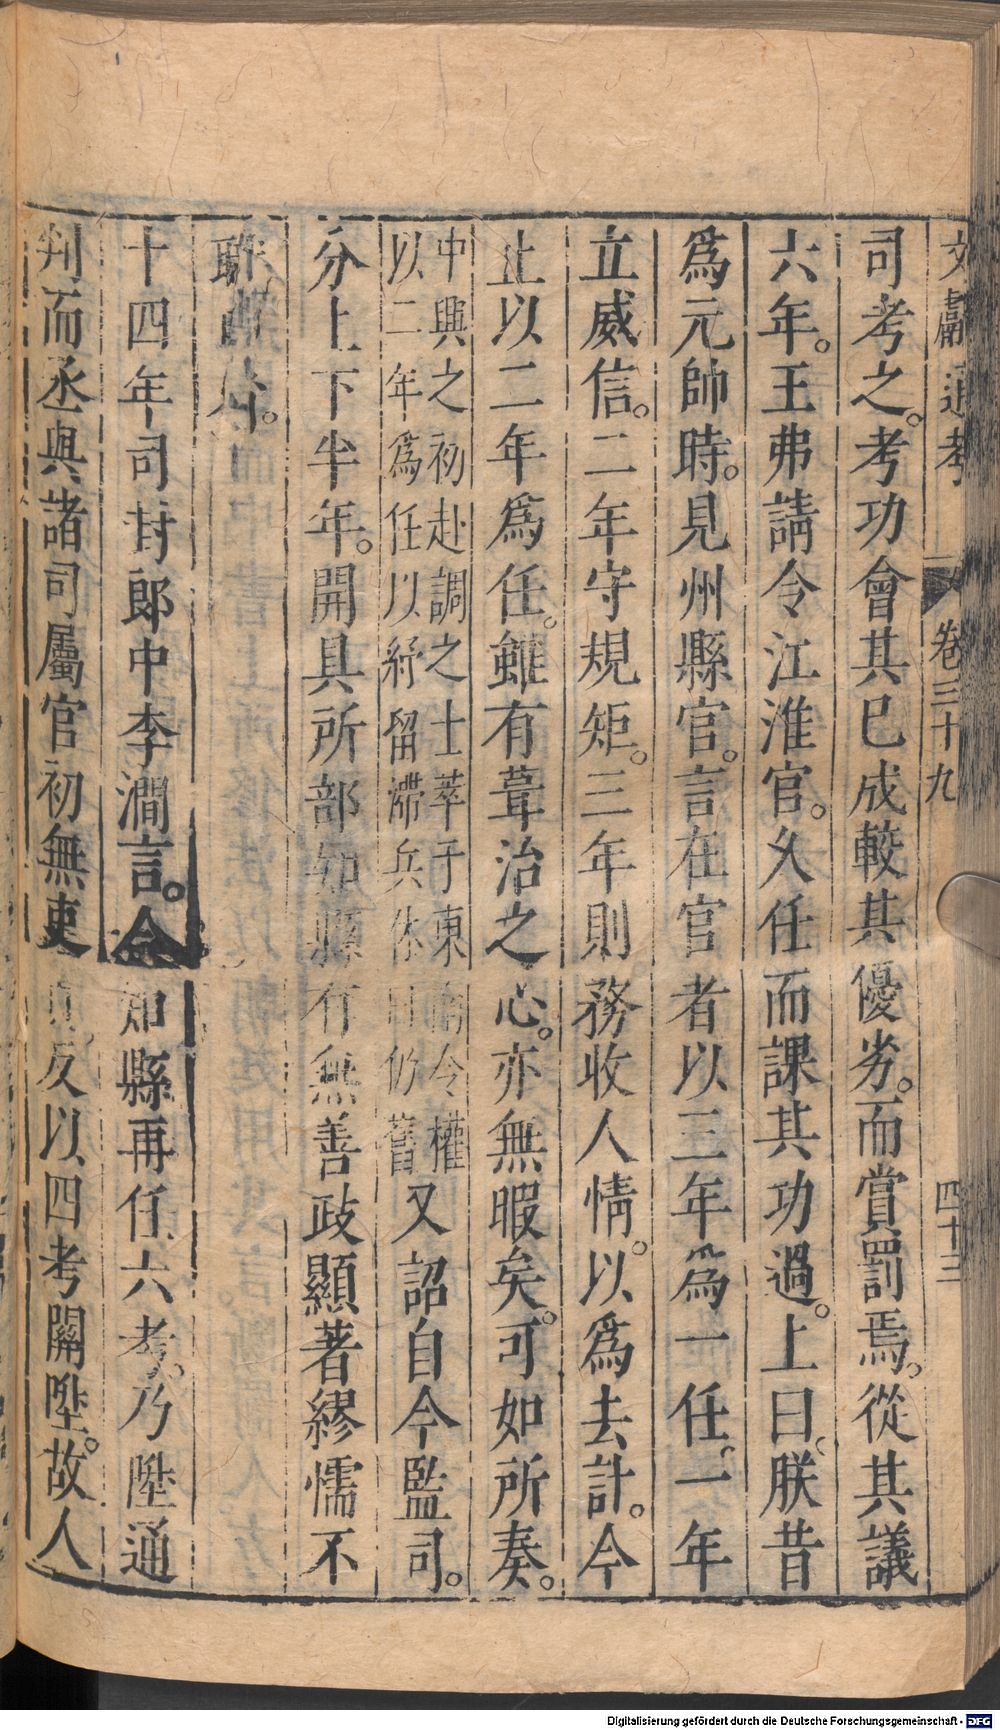 文獻通考 卷三十九 四十三
司考之。考功會其已成較其優劣。而賞罰焉。從其議
六年。王弗請令江淮官。久任而課其功過。上曰。朕昔
為元帥時。見州縣官。言在官者以三年為一任。一年
立威信。二年守規矩。三年則務收人情。以為去計。今
止以二年為任。雖有葺治之心。亦無暇矣。可如所奏。
中興之初赴調之士萃于東南今權
以二年為任以紓留滯兵休日仍舊
又詔自今監司。
分上下半年。開具所部知縣有無善政顯著繆懦不
職
十四年司封郎中李澗言。今知縣再任六考。乃陞通
判而丞與諸司屬官初無吏責。反以四考關陞。故人
Digitalisierung gefördert durch die Deutsche Forschungsgemeinschaft - DFG